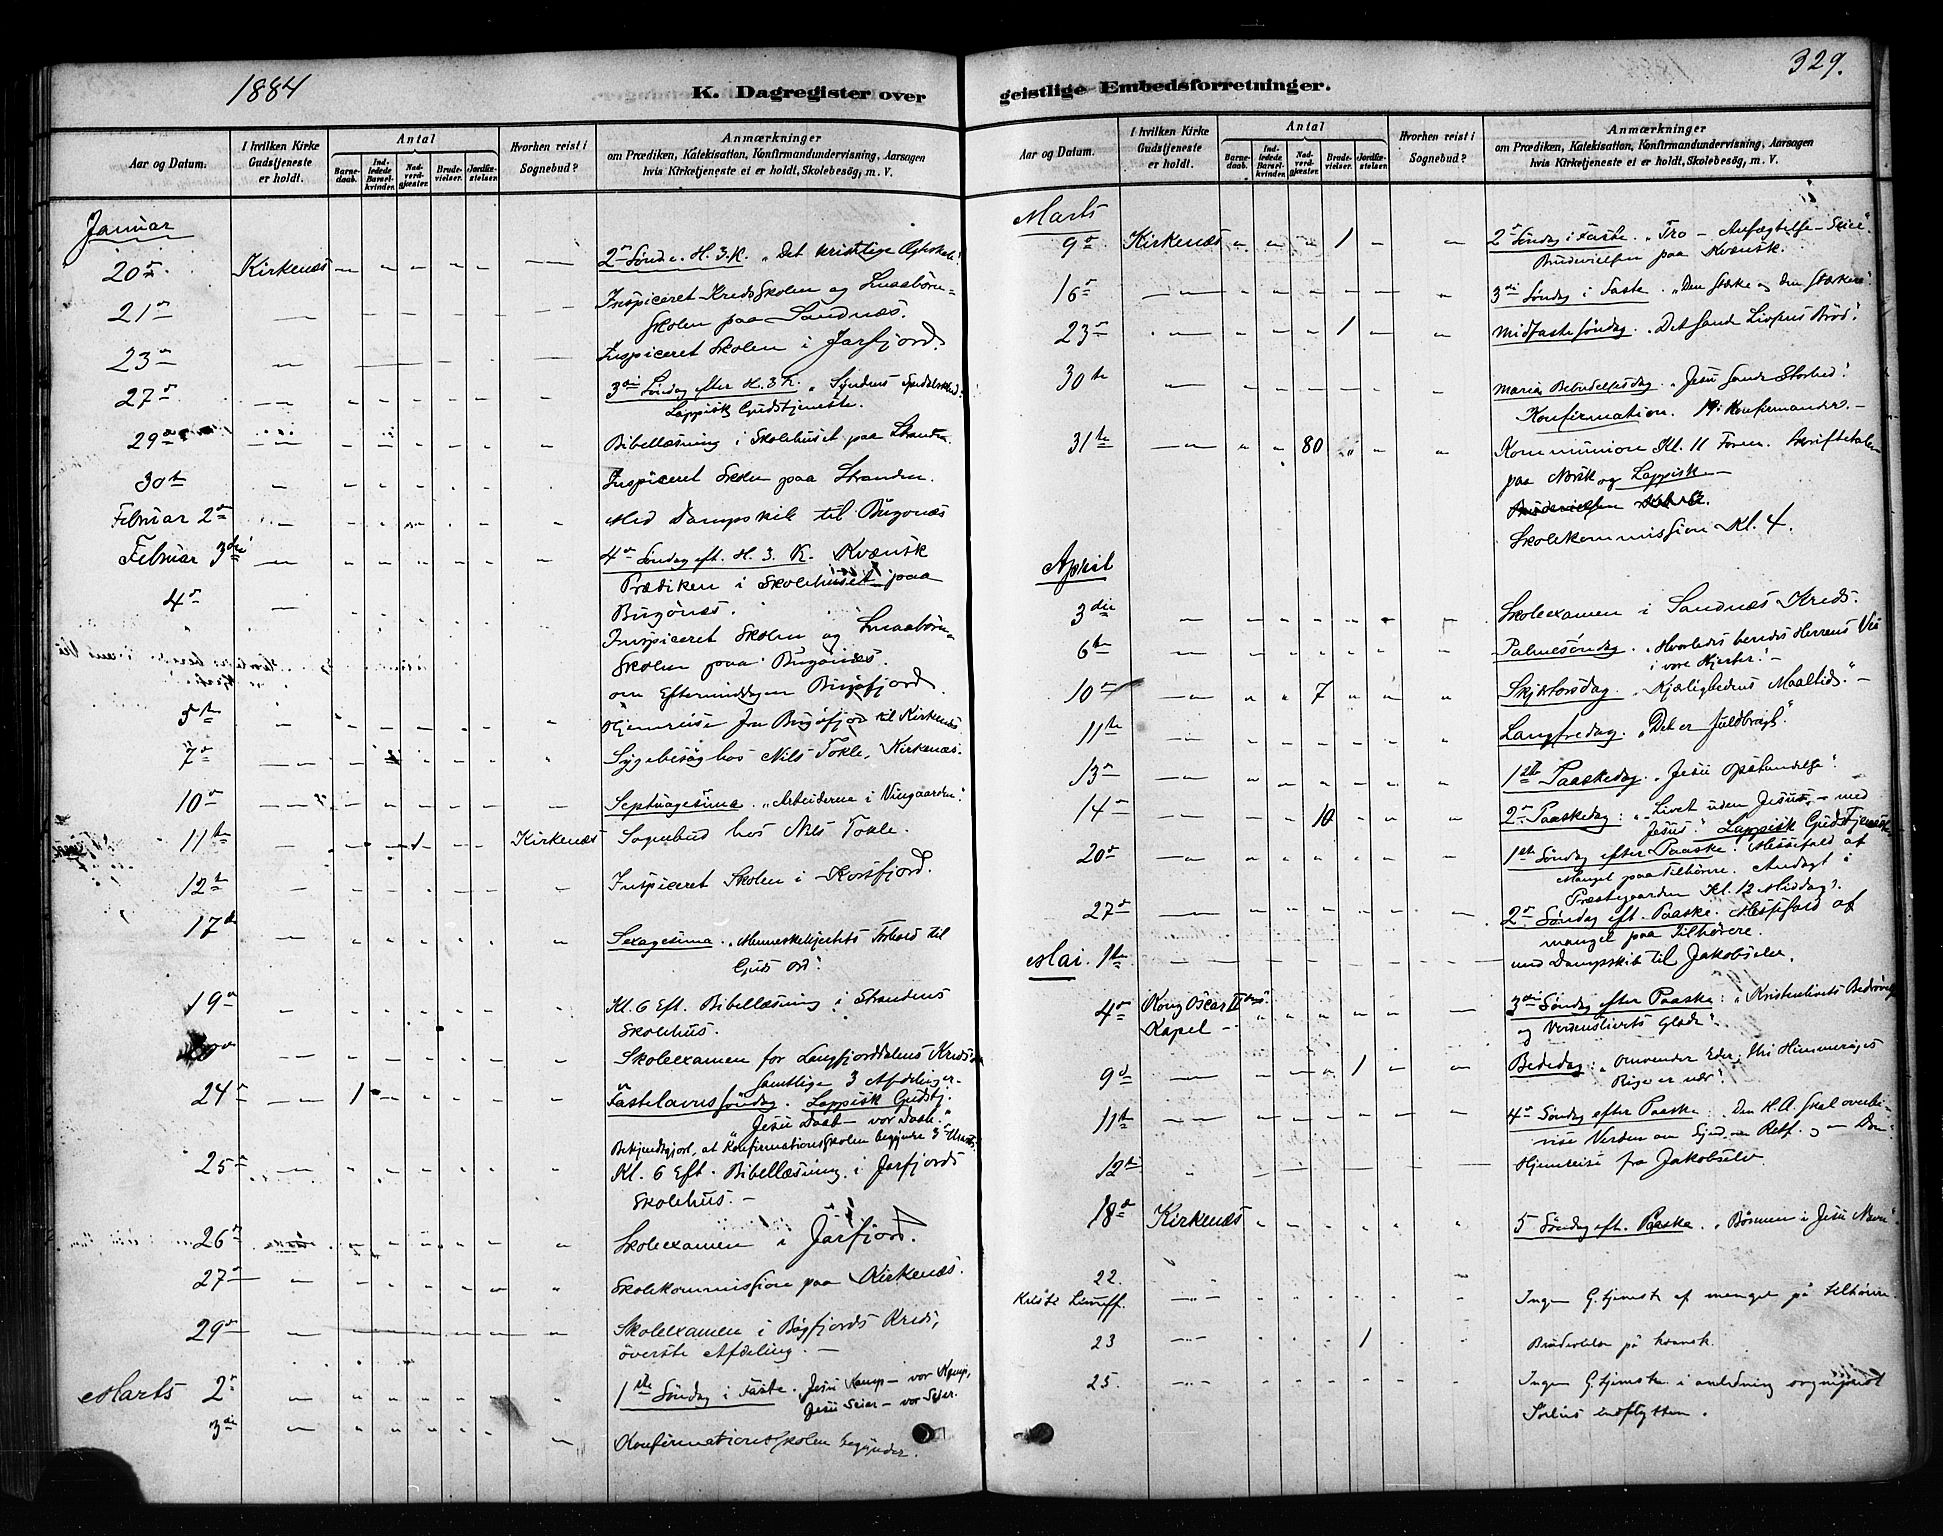 1884
K. Dagregister over geistlige Embedsforretninger.
329.
Aar og Datum.
I hvilken Kirke Gudstjeneste er holdt.
Antal
Barne-daab.
Ind-ledede Barsel-kvinder.
Nad-verd-gjester.
Brude-vielser.
Jordfæ-stelser.
Hvorhen reist i Sognebud?
Anmærkninger
om Prædiken, Katekisation, Konfirmandundervisning, Aarsagen
hvis Kirketjeneste ei er holdt, Skolebesøg, m. V.
Januar
20de Kirkenæs 2den Sønd. e. H. 3. K. „Det kristelige
21de Inspiceret Kredsskolen og Smaabørn-
skolen paa Sandnæs.
23de Inspiceret Skolen i Jarfjord.
27de 3die Søndag efter H. 3 K. „Syndens Spedalskhed.“
Lappisk Gudstjeneste.
29de Bibellæsning i Skolehuset paa Stranden.
30te Inspiceret Skolen paa Stranden.
Februar 2den Med Dampskib til Bugønæs
Februar 3die 4de Søndag eft. H. 3. K. Kvænsk
Prædiken i Skolehuset paa
Bugønæs.
4de Inspiceret Skolen og Smaabørn-
skolen paa Bugønæs.
om Eftermiddagen Bugøfjord.
5te Hjemreise fra Bugøfjord til Kirkenæs
7de Sygebesøg hos Nils Tokle, Kirkenæs.
10de Septuagesima. „Arbeiderne i Vingaarden.“
11te 1 Kirkenæs Sognebud hos Nils Tokle.
12te Inspiceret Skolen i Korsfjord.
17de Sexagesima. „Menneskehjertets Forhold til
Guds Ord“.
19de Kl. 6 Eft. Bibellæsning i Strandens
Skolehus.
Skoleexamen for Langfjorddalens Kreds
samtlige 3 Afdelinger.
24de 1 Fastelavnssøndag. Lappisk Gudstj.
Jesu Daab – vor Daab.“
Bekjendtgjort, at Konfirmationsskolen begynder 3die Marts.
25de Kl. 6 Eft. Bibellæsning i Jarfjords
Skolehus. –
26de Skoleexamen i Jarfjord.
27de Skolekommission paa Kirkenæs.
29de Skoleexamen i Bøgfjords Kreds,
överste Afdeling. –
Marts 2den 1ste Søndag i Faste. Jesu Kamp – vor Kamp,
Jesu Seier – vor Seier.
3die Konfirmationsskolen begynder.
Aar og Datum.
I hvilken Kirke Gudstjeneste er holdt.
Antal
Barne-daab.
Ind-ledede Barsel-kvinder.
Nad-verd-gjester.
Brude-vielser.
Jordfæ-stelser.
Hvorhen reist i Sognebud?
Anmærkninger
om Prædiken, Katekisation, Konfirmandundervisning, Aarsagen
hvis Kirketjeneste ei er holdt, Skolebesøg, m. V.
Marts
9de Kirkenæs 1 2den Søndag i Faste. „Tro – Anfægtelse – Seier“
Brudevielsen paa Kvænsk.
16de 3die Søndag i Faste. „Den Stærke og den Stærkere“.
23de 1 Midfastesøndag. „Det sande Livsens Brød“.
30te Mariæ Bebudelsesdag. „Jesu sande Storhed“.
Konfirmation. 19 Konfirmander. –
31te 80 Kommunion Kl. 11 Form. Skriftetalen
paa Norsk og Lappisk –
Brudevielsen
Skolekommission Kl. 4.
April
3die Skoleexamen i Sandnæs Kreds.
6te Palmesøndag. „Hvorledes beredes Herrens Vei
i vore Hjerter“. –
10de 7 Skjærtorsdag. „Kjærlighedens Maaltid.“ –
11te Langfredag. „Det er fuldbragt“.
13de 1ste Paaskedag. „Jesu Opstandelse“.
14de 10 2den Paaskedag: „Livet uden Jesus, – med
Jesus.“ Lappisk Gudstjeneste
20de 1ste Søndag efter Paaske. Messefald af
Mangel paa Tilhørere. Andagt i
Præstegaarden Kl. 12 Middag.
27de 2den Søndag eft. Paaske. Messefald af
mangel paa Tilhørere.
Mai. 1ste med Dampskib til Jakobselv.
4de Kong Oscar II dens Kapel – 3die Søndag efter Paaske: „Kristenlivets Bedrøvelse
og Verdenslivets Glæde“.
9de 1 Bededag: „Omvender Eder, thi Himmeriges
Rige er nær“.
11te 4de Søndag efter Paaske: Den H. A. skal overbe-
vise Verden om Synd – Retf. og – Dom
12te Hjemreise fra Jakobselv
18de Kirkenæs 5 Søndag eft. Paaske. „Bønnen i Jesu Navn“.
22. Ingen G.tjeneste af mangel på tilhørere.
23 1 Brudevielse på kvænsk.
25. Ingen G.tjeneste i anledning sogneprest
indflytten.